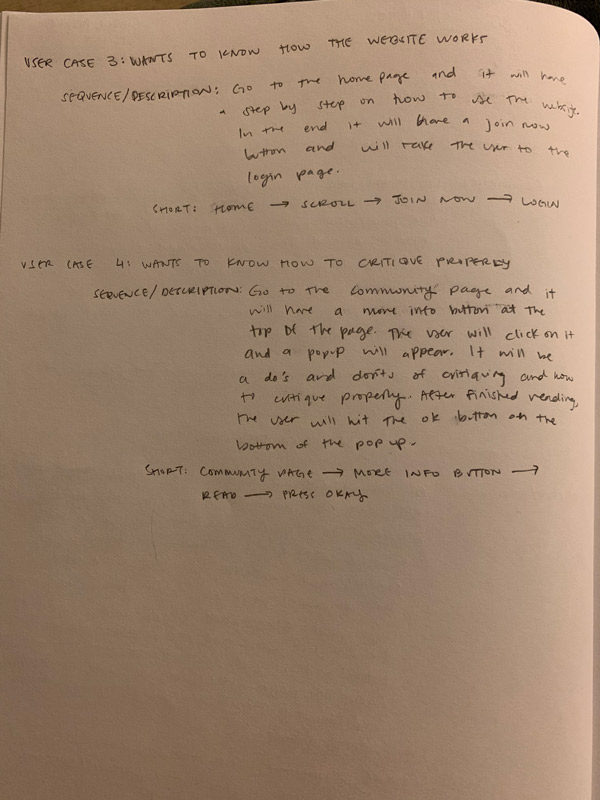 USER CASE 3: WANTS TO KNOW HOW THE WEBSITE WORKS
SEQUENCE/DESCRIPTION: Go to the homepage and it will have
a step by step on how to use the website.
In the end it will have a join now
button and will take the user to the
login page.
SHORT: HOME → SCROLL → JOIN NOW → LOGIN
USER CASE 4: WANTS TO KNOW HOW TO CRITIQUE PROPERLY
SEQUENCE/DESCRIPTION: Go to the community page and it
will have a more info button at the
top of the page. The user will click on it
and a popup will appear. It will be
a do's and donts of critiquing and how
to critique properly. After finished reading,
the user will hit the ok button on the
bottom of the pop up.
SHORT: COMMUNITY PAGE → MORE INFO BUTTON →
READ → PRESS OKAY